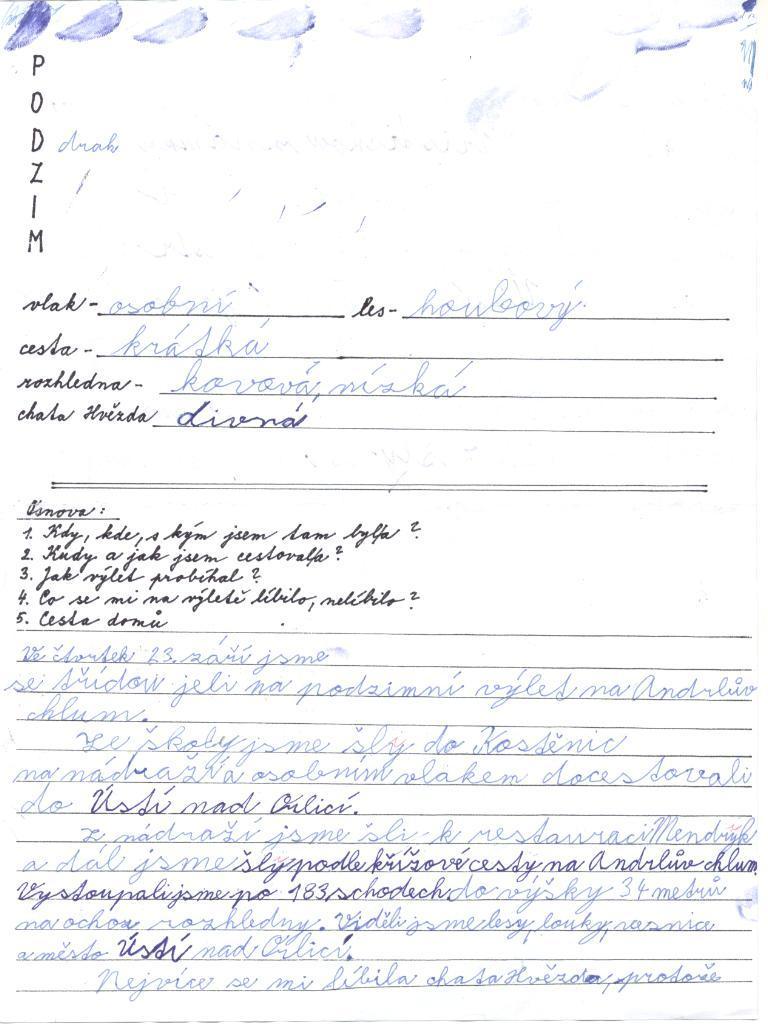 P
O
D drak
Z
I
M
vlak - osobní les - houbový
cesta - krátká
rozhledna - kovová, nízká
chata Hvězda divná
Osnova:
1. Kdy, kde, s kým jsem tam byl/a?
2. Kudy a jak jsem cestoval/a?
3. Jak výlet probíhal?
4. Co se mi na výletě líbilo, nelíbilo?
5. Cesta domů
Ve čtvrtek 23. září jsme
se třídou jeli na podzimní výlet na Andrlův
chlum.
Ze školy jsme šly do Kostěnic
na nádraží a osobním vlakem docestovali
do Ústí nad Orlicí.
Z nádraží jsme šli k restauraci Mendryk
a dál jsme šly podle křížové cesty na Andrlův chlum.
Vystoupali jsme po 183 schodech do výšky 34 metrů
na ochoz rozhledny. Viděli jsme lesy, louky, vesnice
a město Ústí nad Orlicí.
Nejvíce se mi líbila chata Hvězda, protože